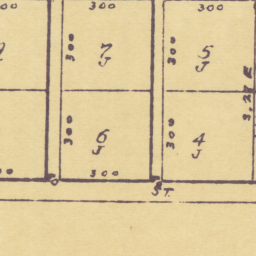 00 300 300
300 7 J 300 5 J
300 6 J 300 4 J
00 300
ST.